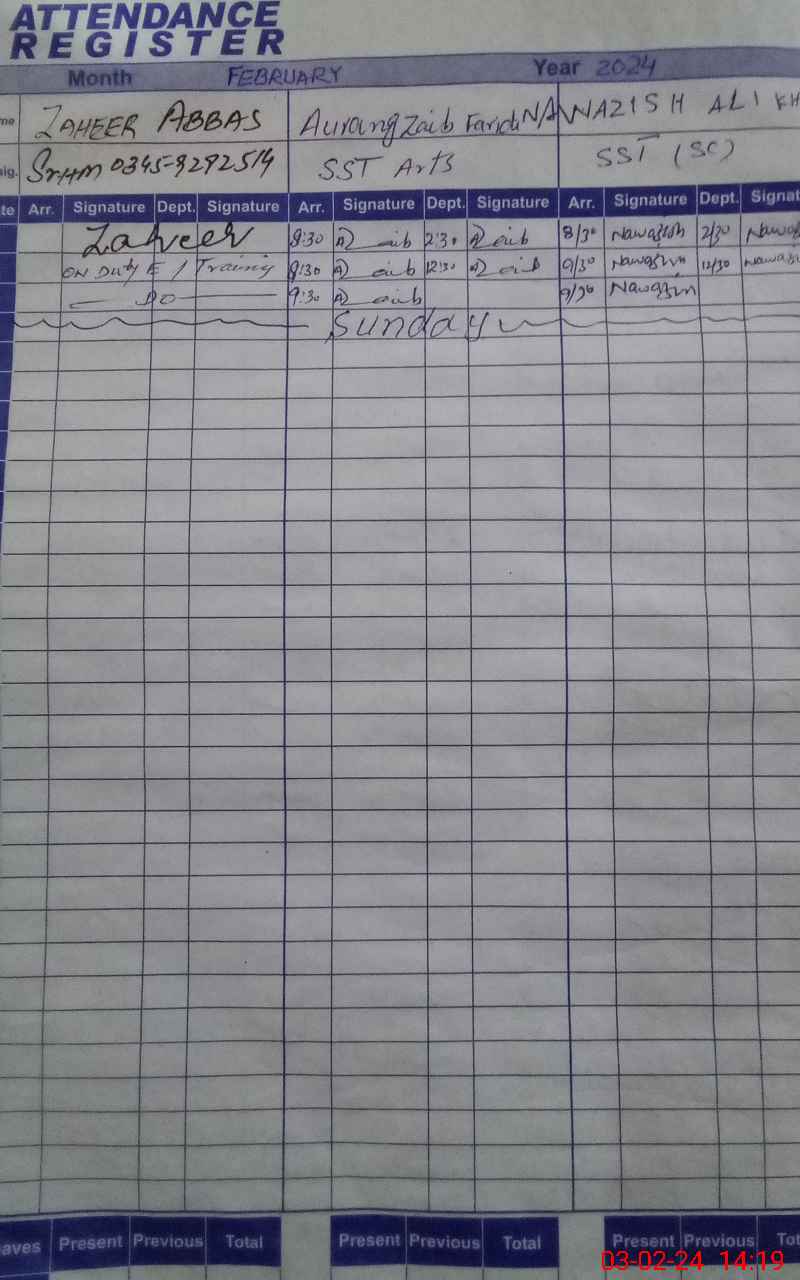 ATTENDANCE
REGISTER
Month FEBRUARY Year 2024
me ZAHEER ABBAS Aurang Zaib Farid NAWAZISH ALI KH
sig. Sr HM 0345-9292514 SST Arts SST (SC)
te Arr. Signature Dept. Signature Arr. Signature Dept. Signature Arr. Signature Dept. Signat
Zaheer 8:30 aib 2:30 aib 8/30 Nawazish 2/30
ON Duty E / Training 9:30 aib 12:30 aib 9/30 12/30
Do 9:30 aib 9/30
Sunday
aves Present Previous Total Present Previous Total Present Previous Tot
03-02-24 14:19